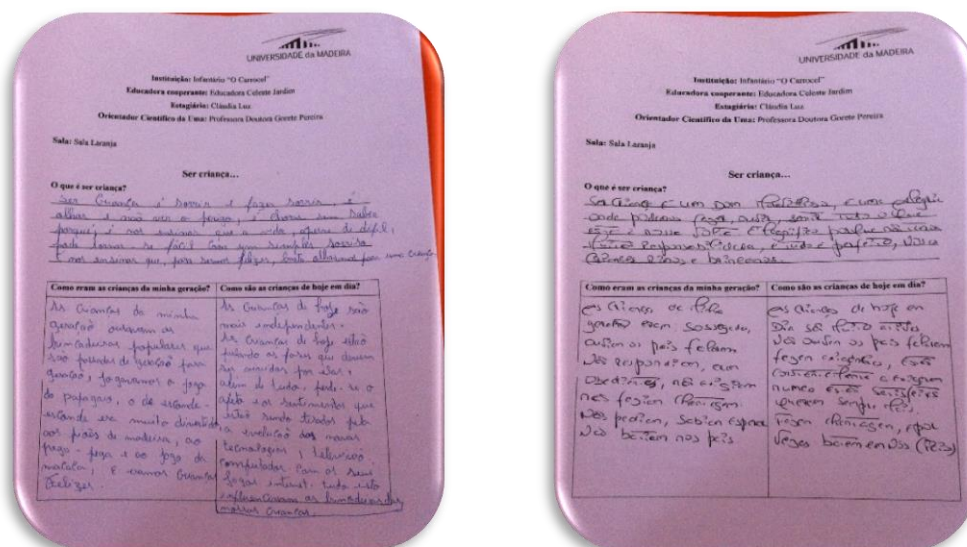 UNIVERSIDADE da MADEIRA
Instituição: Infantário "O Carrocel"
Educadora cooperante: Educadora Celeste Jardim
Estagiária: Cláudia Luz
Orientador Científico da Uma: Professora Doutora Gorete Pereira
Sala: Sala Laranja
Ser criança...
O que é ser criança?
Ser Criança é sorrir e fazer sorrir, é
olhar e não ver o perigo, é chorar sem saber
porquê é nos ensinar que a vida, apesar de difícil,
pode tornar-se fácil com um simples sorriso
É nos ensinar que, para sermos felizes, basta olharmos para uma criança
Como eram as crianças da minha geração?
As Crianças da minha
geração
brincadeiras populares que
são passadas de geração para
geração, jogavamos o jogo
do papagaio, o de esconde-
esconde era muito divertido
aos piões de madeira, ao
pega-pega e ao jogo da
macaca, E eramos Crianças
felizes.
Como são as crianças de hoje em dia?
As Crianças de hoje são
mais independentes.
As Crianças de hoje estão
as fases que devem
ser vividas por elas,
além de tudo, perde-se o
afeto e os sentimentos que
estão sendo tirados pela
evolução das novas
tecnologias, televisão
computador com os seus
jogos internet. tudo isto
as brincadeiras das
nossas crianças.
UNIVERSIDADE da MADEIRA
Instituição: Infantário "O Carrocel"
Educadora cooperante: Educadora Celeste Jardim
Estagiária: Cláudia Luz
Orientador Científico da Uma: Professora Doutora Gorete Pereira
Sala: Sala Laranja
Ser criança...
O que é ser criança?
Ser Criança é um dom, é uma alegria
onde podemos fazer, ouvir, sentir tudo o que
responsabilidades, é tudo perfeito,
Como eram as crianças da minha geração?
as Crianças de
geração eram, sossegadas,
ouviam os pais falarem
não respondiam, eram
obedientes, não exigiam
não faziam chantagem
não pediam, sabiam esperar
não batiam nos pais
Como são as crianças de hoje em dia?
as Crianças de hoje em
Dia são
não ouvem os pais falarem
fazem
nunca
querem sempre mais.
fazem chantagem, e por
vezes batem em nós (Pais)